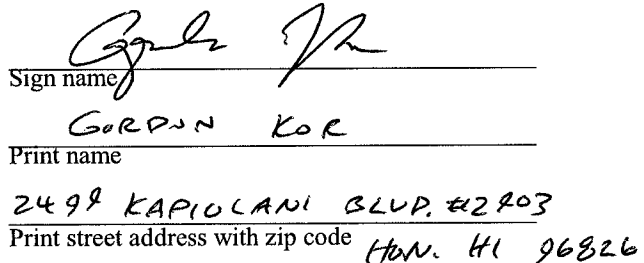 Sign name
GORDON KOR
Print name
2499 KAPIOLANI BLVD. #2903
Print street address with zip code HON. HI 96826